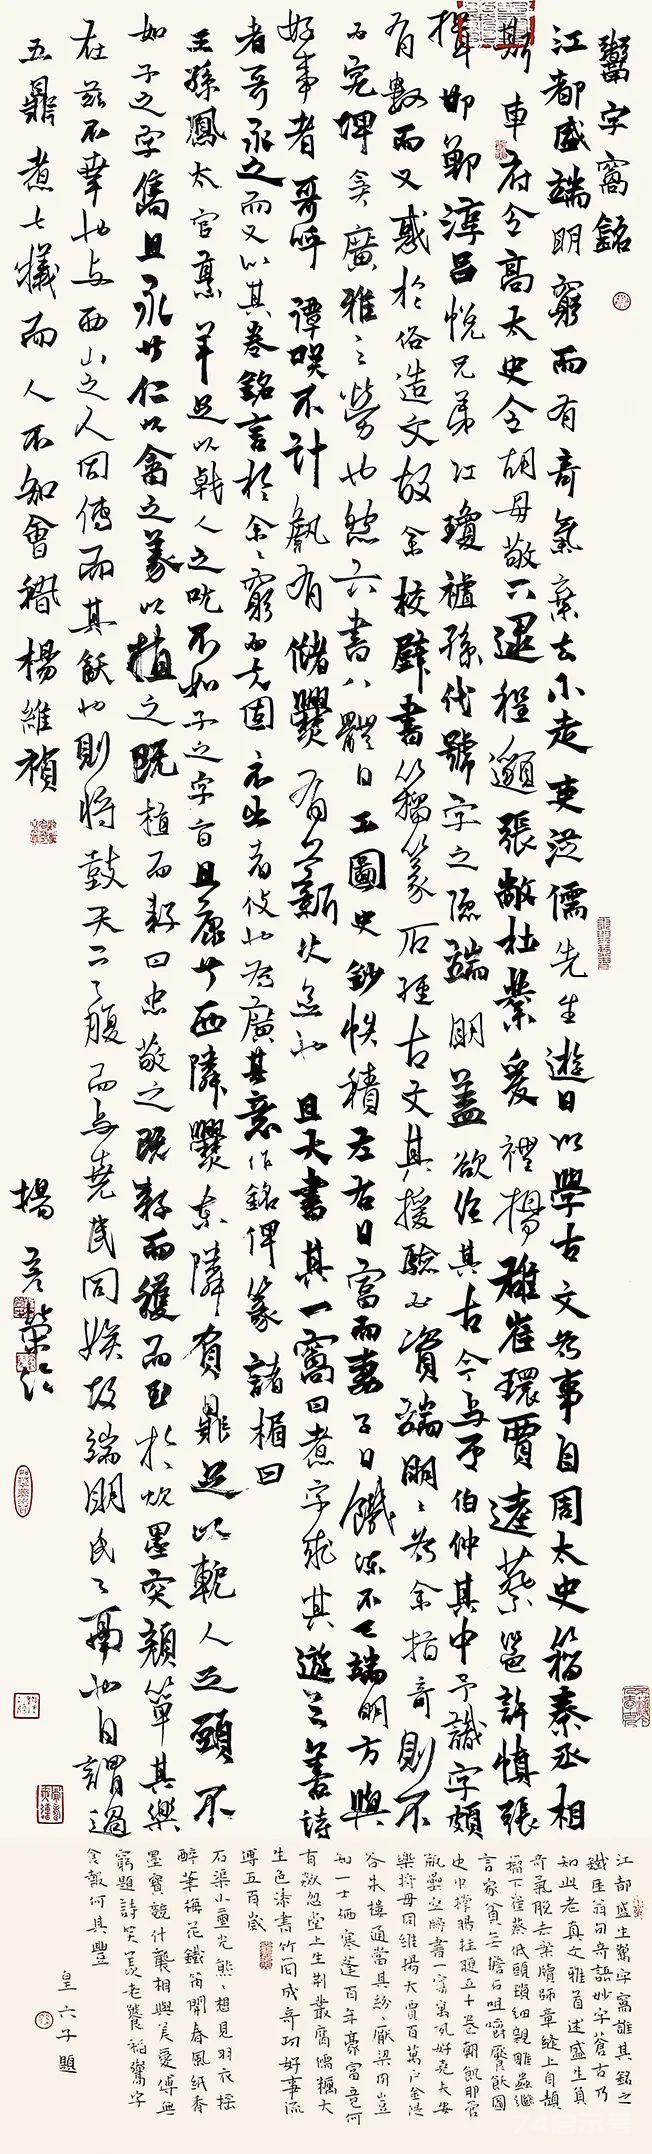 鬻字窩銘
江都盛端明窮而有奇氣棄去小走吏從儒先生遊日以學古文為事自周太史籀秦丞相
斯車府令高太史令胡毋敬下逮程邈張敞杜業爰禮揚雄崔瑗賈逵蔡邕許慎張
揖邯鄲淳呂忱兄弟江瓊禮孫代號字之隱端明蓋欲位其古今与予伯仲其中予識字頗
有數而又惑於俗造文故余校壁書籀篆石經古文其援驗必資端明端明为余指奇則不
而完埤矣廣雅之勞也然六書八體日工圖史鈔帙積左右日富而妻子日饑凍不已端明方與
好事者哥呼譚咲不計甑有儲爨有薪状急也且大書其一窩曰煮字我其遊之善詩
者哥永之而又以其卷銘言於余余窮而尤固不出者彼也為廣其意作銘俾篆諸楣曰
王孫鳳太官羔羊足以戟人之吭不如子之字旨且康兮西隣爨東隣負鼎足以輗人之頭不
如子之字雋且永兮仁以禽之義以植之既植而耔曰忠敬之既耔而穫而至於炊墨突顏簞其樂
在茲不幸也与西山之人同傳而其餗也則將鼓天下之腹而与堯民同娛故端明氏之鬻也自謂過
五鼎煮七犧而人不知會稽楊維禎
楊彥榮임
江都盛生鬻字窩誰其銘之
鐵厓翁句奇語妙字蒼古乃
知此老真文雅首述盛生負
奇氣脫去案牘師章縫上自頡
籀下崔蔡低頭瑣細親雕蟲繼
言家貧無擔石咀嚼饜飫圖
史中撐腸拄腹五千卷朝飢那管
瓶罍空牓書一窩寓夙好堯夫安
樂將毋同維揚大賈百萬戶金隄
谷朱樓通當其紛紛厭粱肉豈
知一士栖寒蓬百年豪富竟何
有歘忽堂上生荊叢腐儒糲大
生色漆書竹簡成奇功好事流
傳五百歲
石渠小重光熊熊想見羽衣搖
醉筆梅花鐵笛開春風紙香
墨寶競什襲相與美愛傳無
窮題詩笑羨老饕福鬻字
食報何其豐
皇六子題